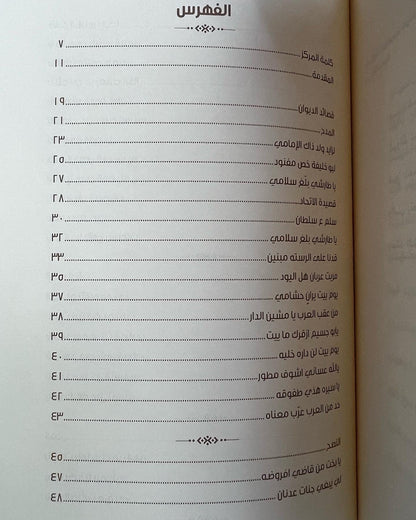 الفهرس
كلمة المركز ٧
المقدمة ١١
قصائد الديوان ١٩
المدح ٢١
تزايد ولا ذاك الإمامي ٢٣
نبو خليفة خص مفتود ٢٥
يا طارشي بلغ سلامي ٢٧
قصيدة الاتحاد ٢٨
سلم ع سلطان ٣٠
يا طارشي بلغ سلامي ٣٢
قدنا على الرسته مبنين ٣٣
مريت عربان هل اليود ٣٥
يوم بيت بران حشامي ٣٧
من عقب العرب يا مشين الدار ٣٨
يابو جسيم ازقرك ما ييت ٣٩
يوم بيت لن داره خليه ٤٠
يالله عساني اشوف مطور ٤١
يا سيره هذي طفوقه ٤٢
حد من العرب عزب معناه ٤٣
النصح ٤٥
يا بخت من قاضي افروضه ٤٧
لي يبغي جنات عدنان ٤٨